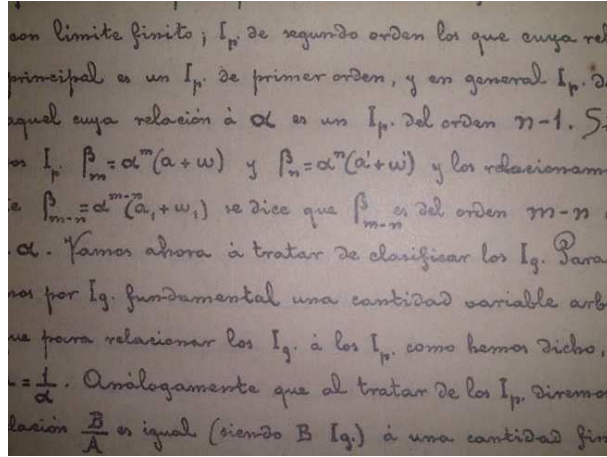 con limite finito; Ip. de segundo orden los que cuya rel
principal es un Ip. de primer orden, y en general Ip. d
aquel cuya relación à α es un Ip. del orden n-1. S
os Ip. β_m = α^m(a+ω) y β_n = α^n(a'+ω') y los relacionam
e β_{m-n} = α^{m-n}(a₁+ω₁) se dice que β_{m-n} es del orden m-n
α. Vamos ahora à tratar de clasificar los Ig. Para
nos por Ig. fundamental una cantidad variable arb
ue para relacionar los Ig. à los Ip. como hemos dicho,
= 1/α. Análogamente que al tratar de los Ip. diremo
lación B/A es igual (siendo B Ig.) à una cantidad fin